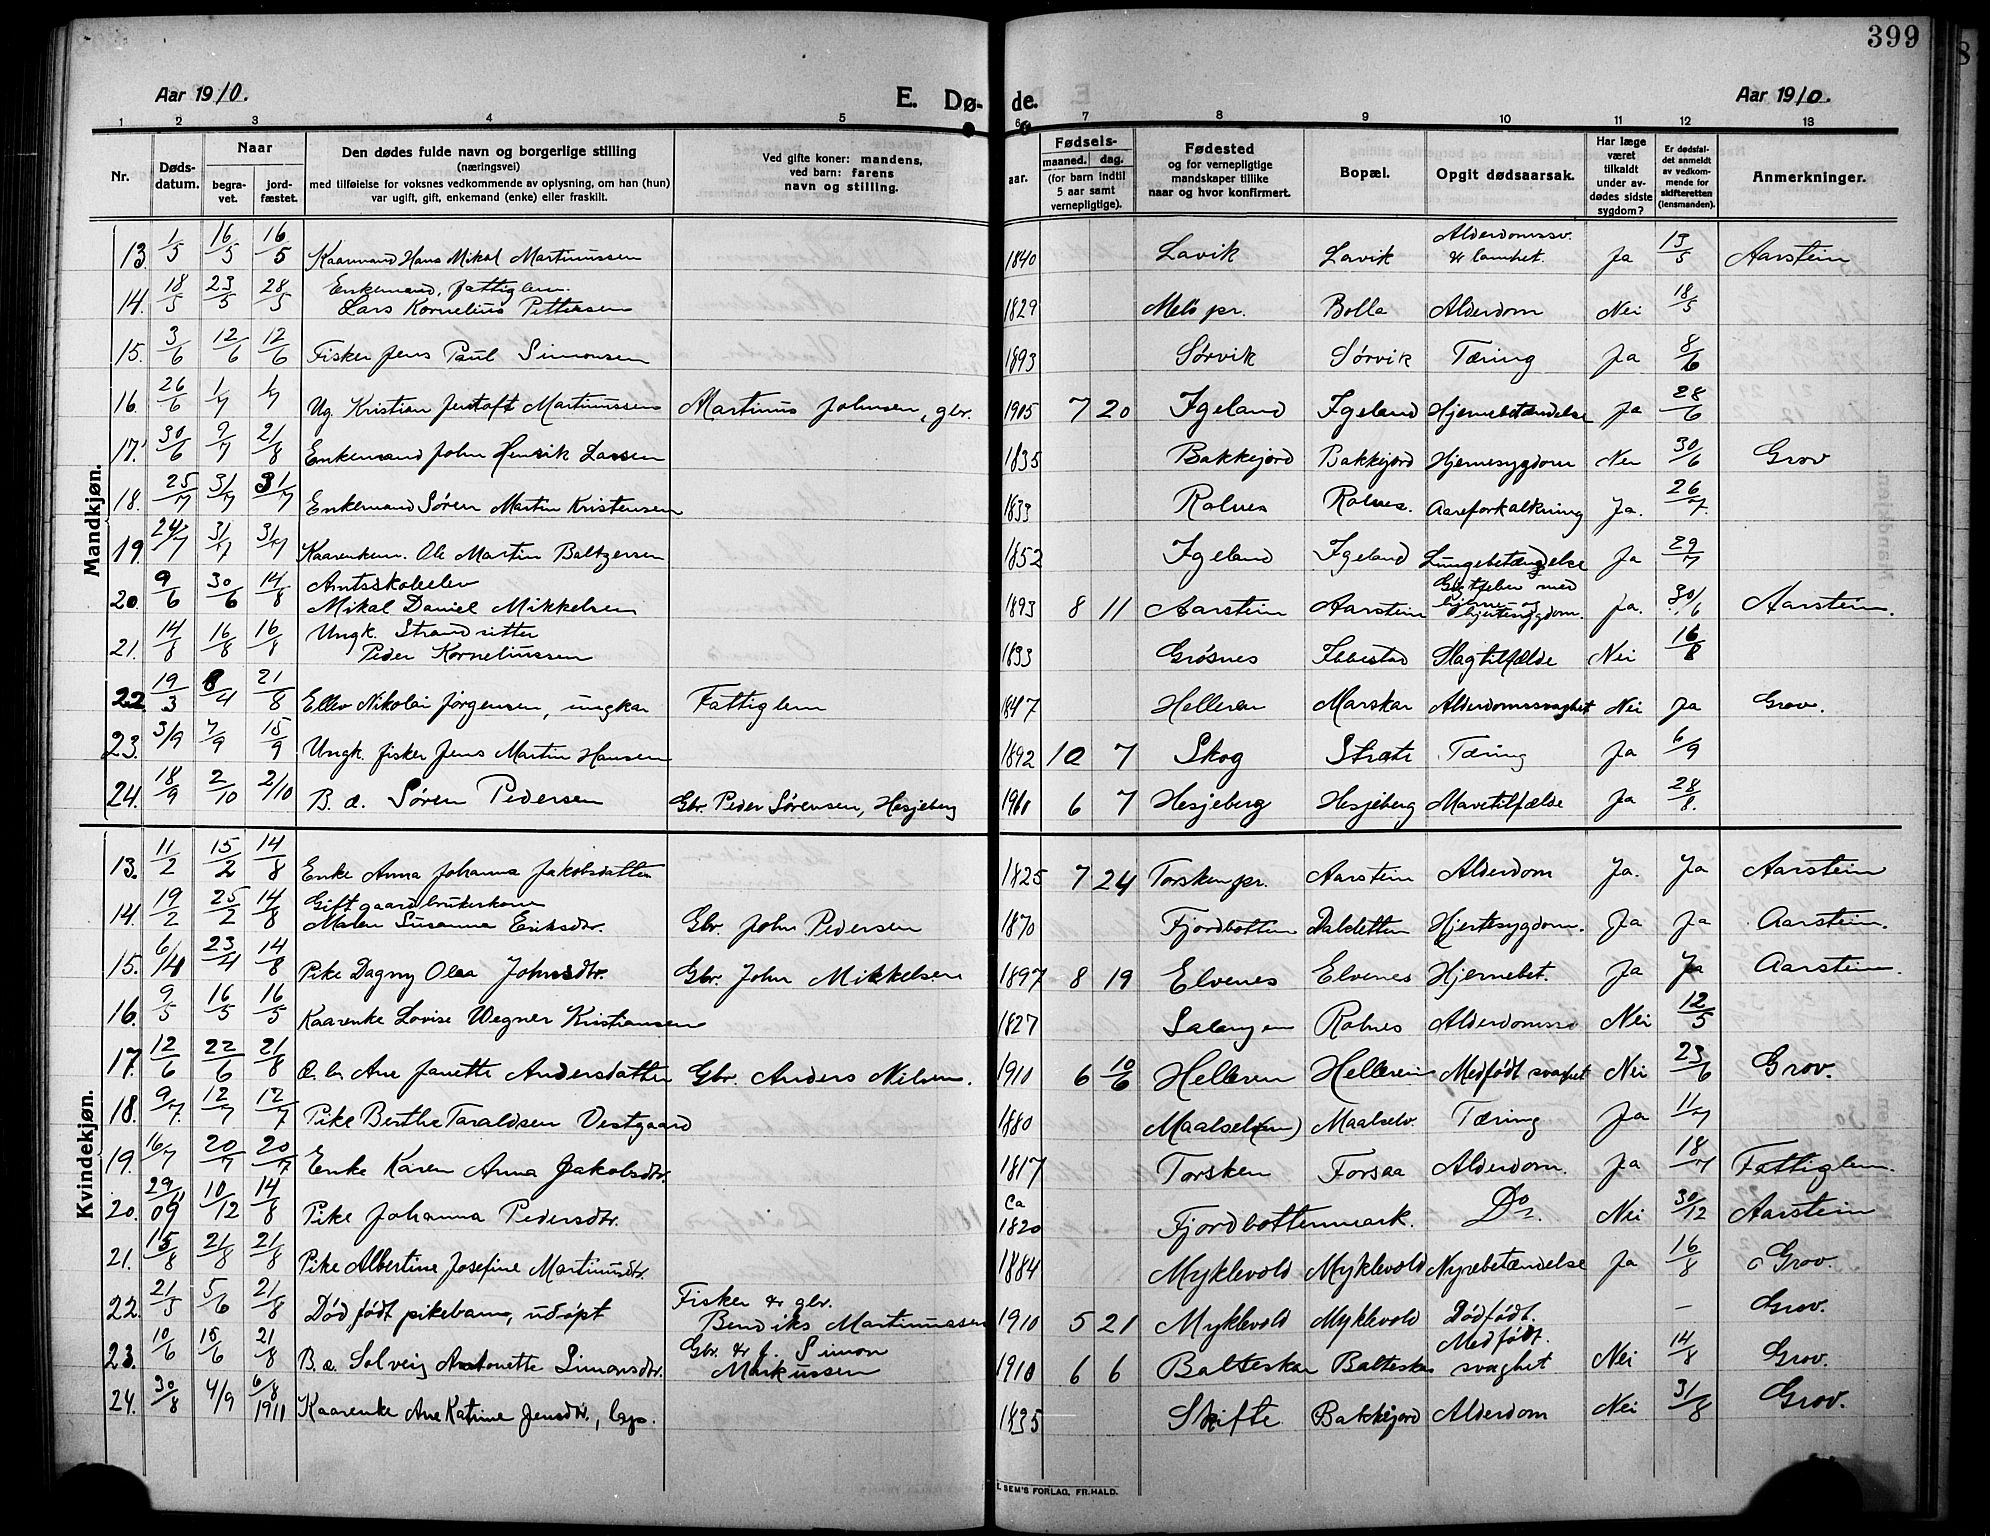 399
Aar 1910. E. Dø- de. Aar 1910.
1 2 3 4 5 6 7 8 9 10 11 12 13
Nr. Døds-datum. Naar begra-vet. jord-fæstet. Den dødes fulde navn og borgerlige stilling (næringsvei) med tilføielse for voksnes vedkommende av oplysning, om han (hun) var ugift, gift, enkemand (enke) eller fraskilt. Ved gifte koner: mandens, ved barn: farens navn og stilling. aar. Fødsels- maaned. dag. (for barn indtil 5 aar samt vernepligtige). Fødested og for vernepligtige mandskaper tillike naar og hvor konfirmert. Bopæl. Opgit dødsaarsak. Har læge været tilkaldt under av-dødes sidste sygdom? Er dødsfal-det anmeldt av vedkom-mende for skifteretten (lensmanden). Anmerkninger.
Mandkjøn.
13. 1/5 16/5 16/5 Kaarmand Hans Mikal Martinussen 1840 Lavik Lavik Alderdomssv. & lamhet. Ja 13/5 Aarstein
14. 18/5 23/5 28/5 Enkemand, fattiglem. Lars Kornelius Pettersen 1829 Melö pr. Bolla Alderdom Nei 18/5
15. 3/6 12/6 12/6 Fisker Jens Paul Simonsen 1893 Sørvik Sørvik Tæring Ja 8/6
16. 26/6 1/7 1/7 Ug. Kristian Jentoft Martinussen Martinus Johnsen, gbr. 1905 7 20 Igeland Igeland Hjernebetændelse Ja 28/6
17. 30/6 9/7 21/8 Enkemand John Henrik Larsen 1835 Bakkejord Bakkejord Hjernesygdom Nei 30/6 Grov
18. 25/7 31/7 31/7 Enkemand Søren Martin Kristensen 1833 Rolnes Rolnes. Aareforkalkning Ja. 26/7.
19. 24/7 31/7 31/7 Kaarenkem. Ole Martin Baltzersen 1852 Igeland Igeland Lungebetændelse Ja 29/7
20. 9/6 30/6 14/8 Amtsskoleelev Mikal Daniel Mikkelsen 1893 8 11 Aarstein Aarstein med hjerne og hjertesygdom. Ja. 30/6 Aarstein.
21. 14/8 16/8 16/8 Ungk. Strandsitter Peder Korneliussen 1833 Grøsnes Ibbestad Slagtilfælde Nei 16/8
22. 19/3 8/4 21/8 Ellev Nikolai Jørgensen, ungkar Fattiglem 1847 Helleren Marskar Alderdomssvaghet Nei Ja Grov.
23. 3/9 7/9 15/9 Ungk. fisker Jens Martin Hansen 1892 10 7 Skog Strate Tæring Ja 6/9
24. 18/9 2/10 2/10 B. æ. Søren Pedersen Gbr. Peder Sørensen, Hesjeberg 1910 6 7 Hesjeberg Hesjeberg Mavetilfælde Ja 28/8.
Kvindekjøn.
13. 11/2 15/2 14/8 Enke Anna Johanna Jakobsdatter 1825 7 24 Torsken pr. Aarstein Alderdom Ja. Ja Aarstein
14. 19/2 25/2 14/8 Gift gaardbrukerkone Malen Susanna Eriksdtr. Gbr. John Pedersen 1870 Fjordbotten Dalsletten Hjertesygdom. Ja Ja Aarstein.
15. 6/4 23/4 14/8 Pike Dagny Olea Johnsdtr. Gbr. John Mikkelsen 1897 8 19 Elvenes Elvenes Hjernebet. Ja Ja Aarstein.
16. 9/5 16/5 16/5 Kaarenke Lovise Wegner Kristiansen 1827 Salangen Rolnes Alderdomssv Nei 12/5
17. 12/6 22/6 21/8 Æ. b. Ane Janette Andersdatter Gbr. Anders Nilsen. 1910 6 10/6 Helleren Helleren Medfødt svaghet Nei 23/6 Grov.
18. 9/7. 12/7 12/7 Pike Berthe Taraldsen Vestgaard 1880 Maalselv(en) Maalselv. Tæring Ja 11/7
19. 16/7 20/7 20/7 Enke Karen Anna Jakobsdtr. 1817 Torsken Forsaa Alderdom. Ja 18/7 Fattiglem.
20. 29/11 09 10/12 14/8 Pike Johanna Pedersdtr. Ca 1820 Fjordbottenmark. Do. Nei 30/12 Aarstein
21. 15/8 21/8 21/8 Pike Albertine Josefine Martinusdtr. 1884 Myklevold Myklevold Nyrebetændelse Ja 16/8 Grov.
22. 21/5 5/6 21/8 Død født pikebarn, udøpt Fisker & gbr. Bendiks Martinussen 1910 5 21 Myklevold Myklevold Dødfødt. – Grov.
23. 10/6 15/6 21/8 B. æ. Solveig Antonette Simonsdtr. Gbr. & f. Simon Markussen 1910 6 6 Balteskar Balteskar Medfødt. svaghet Nei 14/8 Grov.
24. 30/8 4/9 6/8 1911 Kaarenke Ane Katrine Jensdtr., 1835 Skifte Bakkejord Alderdom Nei 31/8 Grov.
SEM'S FORLAG, FR.HALD.